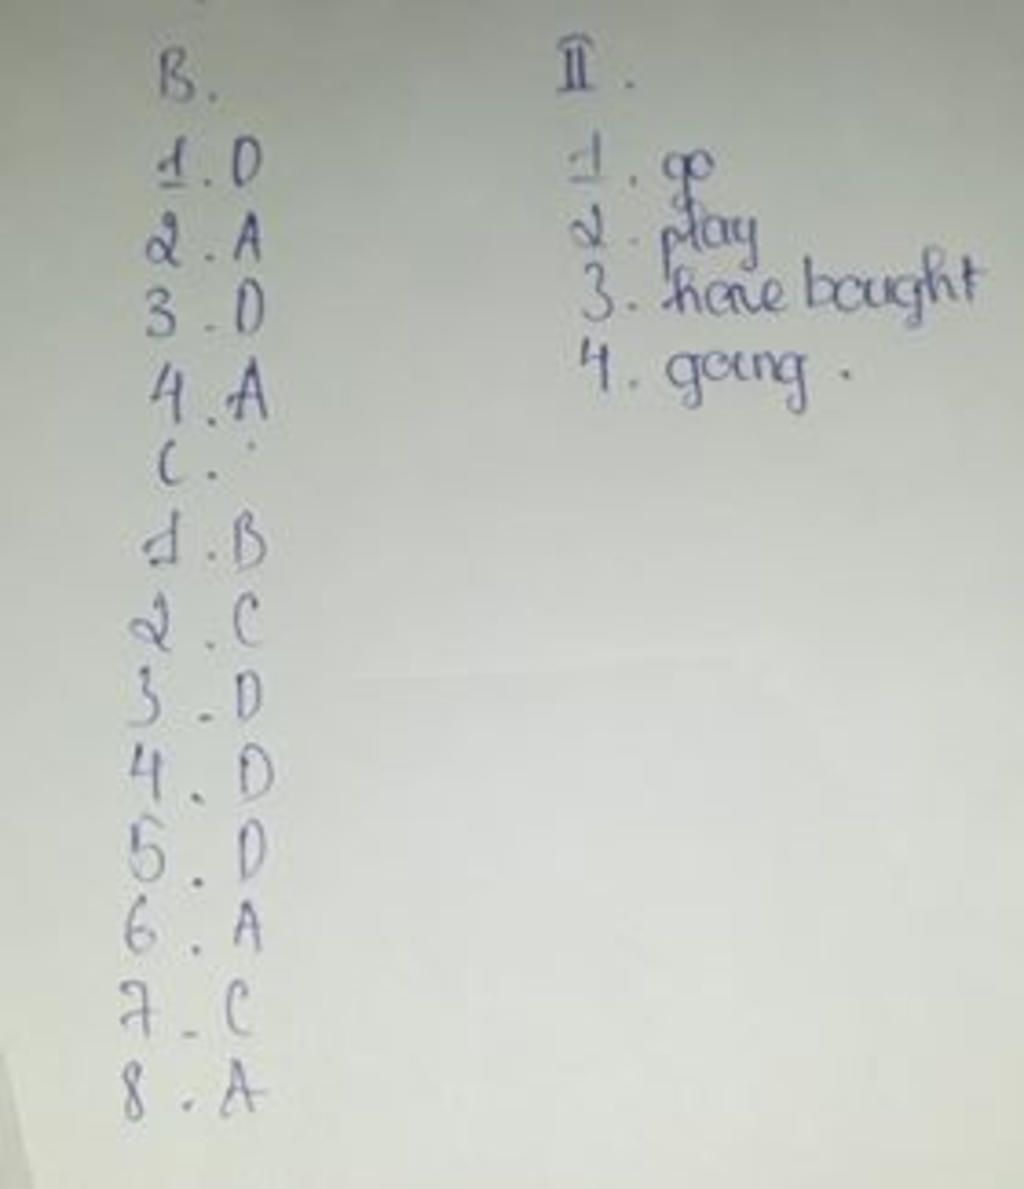 B.
1. D
2. A
3. D
4. A
C.
1. B
2. C
3. D
4. D
5. D
6. A
7. C
8. A
II.
1. go
2. play
3. have bought
4. going.